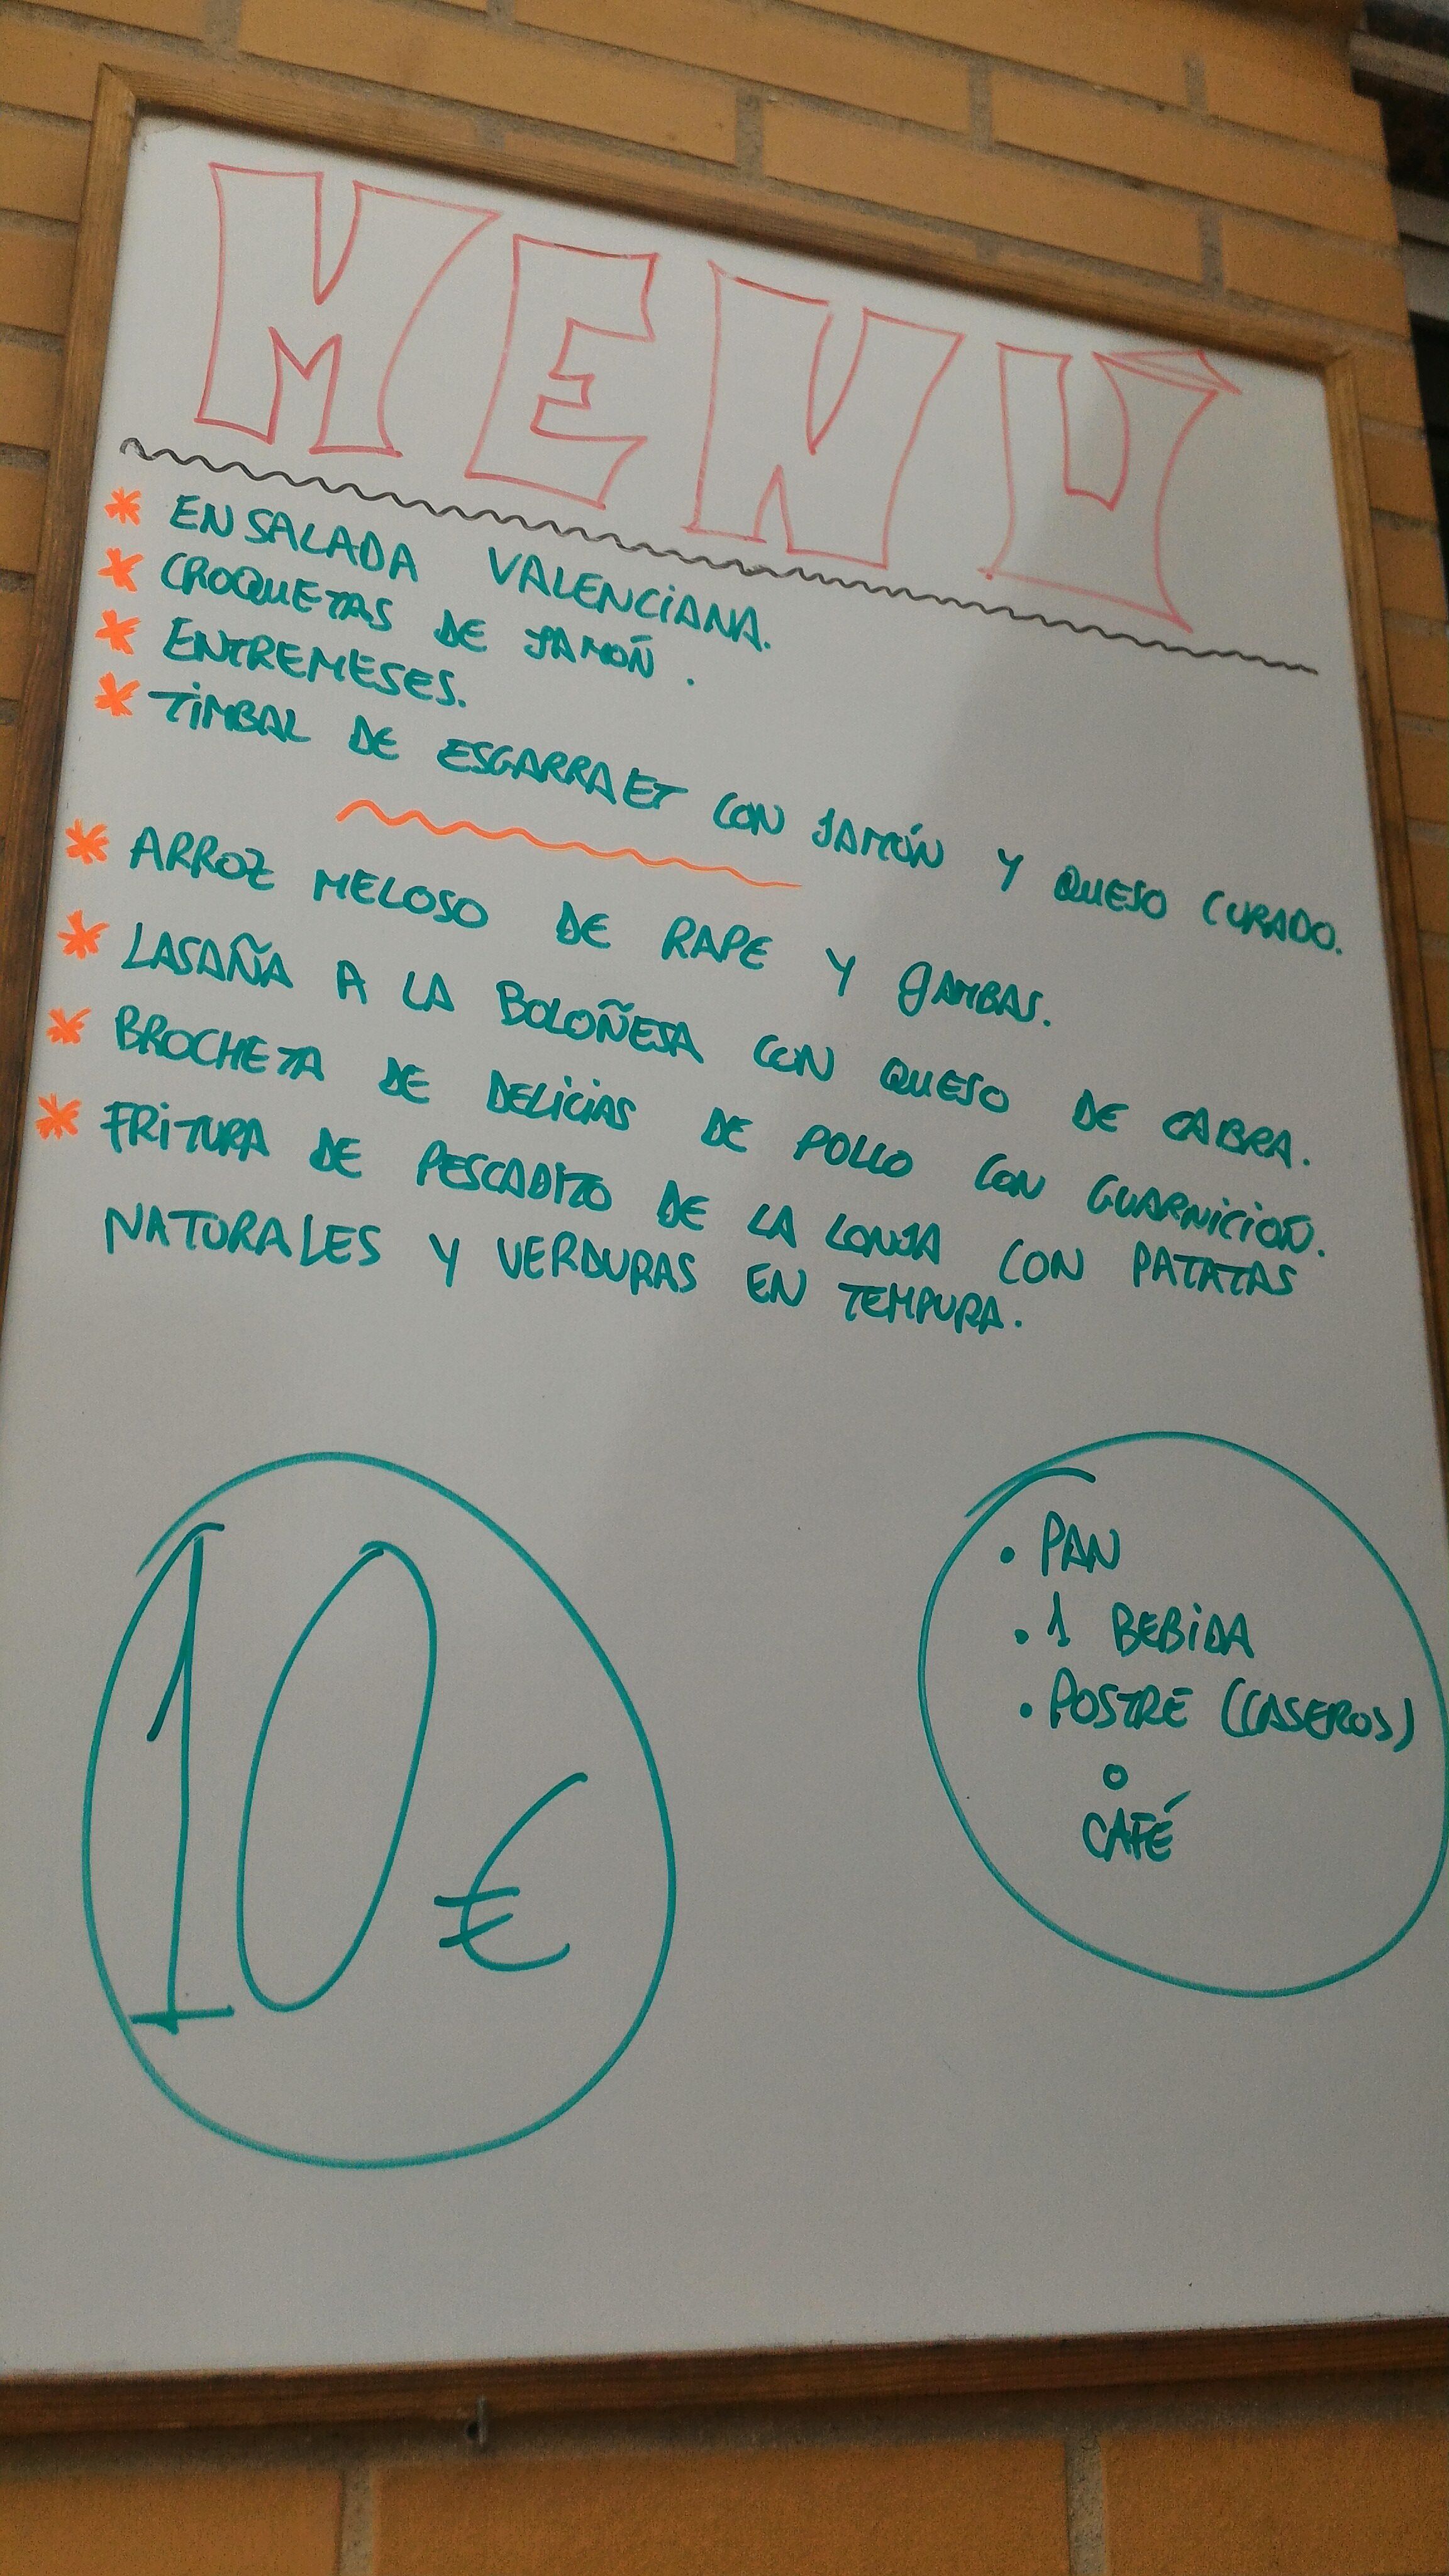 MENÚ
* ENSALADA VALENCIANA.
* CROQUETAS DE JAMÓN.
* ENTREMESES.
* TIMBAL DE ESGARRAET CON JAMÓN Y QUESO CURADO.
* ARROZ MELOSO DE RAPE Y GAMBAS.
* LASAÑA A LA BOLOÑESA CON QUESO DE CABRA.
* BROCHETA DE DELICIAS DE POLLO CON GUARNICIÓN.
* FRITURA DE PESCADITO DE LA LONJA CON PATATAS
NATURALES Y VERDURAS EN TEMPURA.
10 €
• PAN
• 1 BEBIDA
• POSTRE (CASEROS)
O
CAFÉ